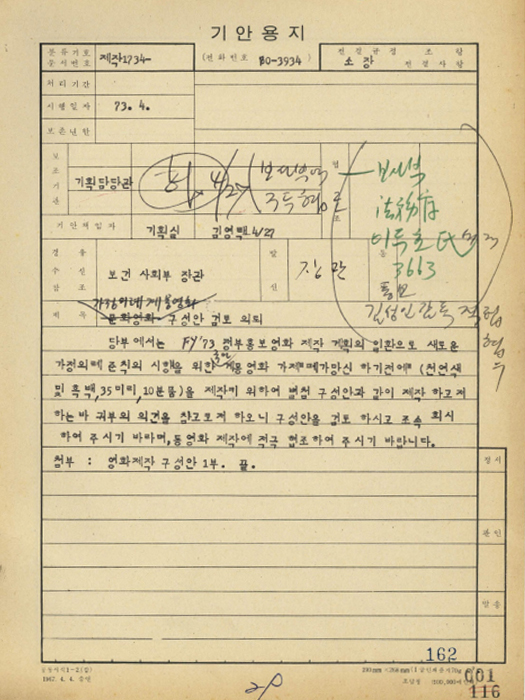 기안용지
분류기호 문서번호 제작1734- (전화번호 70-3934) 전결규정 조 항
소장 전결사항
처리기간
시행일자 73. 4.
보존년한
보조기관 기획담당관 4/27 협조
기안책임자 기획실 김영백 4/27
경유 수신 참조 보건 사회부 장관 발신 장관
3613
가정의례 계몽영화
제목 문화영화 구성안 검토 의뢰
당부에서는 FY'73 정부홍보영화 제작 계획의 일환으로 새로운
가정의례 준칙의 시행을 위한 국민 계몽영화 (천연색
및 흑백, 35미리, 10분물)을 제작키 위하여 별첨 구성안과 같이 제작 하고저
하는바 귀부의 의견을 참고로저 하오니 구성안을 검토 하시고 조속 회시
하여 주시기 바라며, 동영화 제작에 적극 협조하여 주시기 바랍니다.
첨부 : 영화제작 구성안 1부. 끝.
정서
관인
발송
162
공통서식1-2(갑)
1967. 4. 4. 승인
190mm×268mm
001
116
20